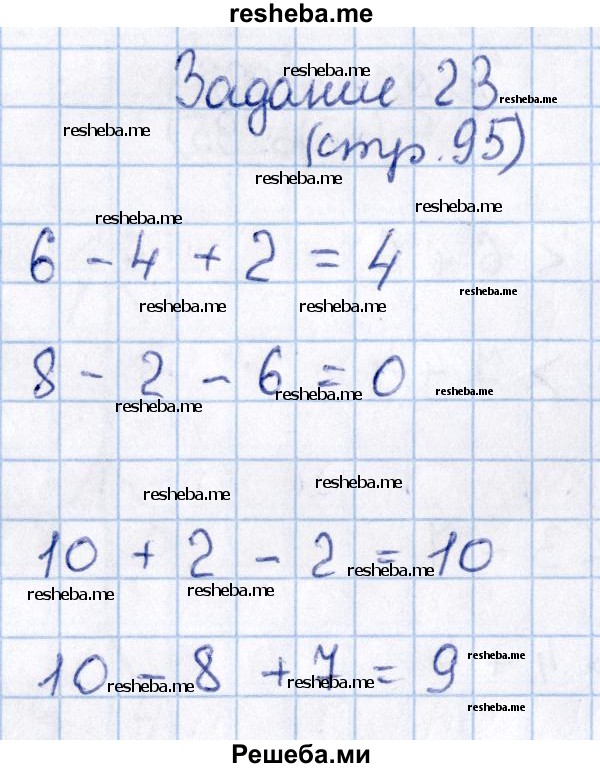 resheba.me
Задание 23
resheba.me
resheba.me
resheba.me
(стр. 95)
resheba.me
resheba.me
resheba.me
6 - 4 + 2 = 4
resheba.me
resheba.me
resheba.me
8 - 2 - 6 = 0
resheba.me
resheba.me
resheba.me
resheba.me
resheba.me
10 + 2 - 2 = 10
resheba.me
resheba.me
resheba.me
10 - 8 + 7 = 9
resheba.me
resheba.me
resheba.me
resheba.me
Решеба.ми